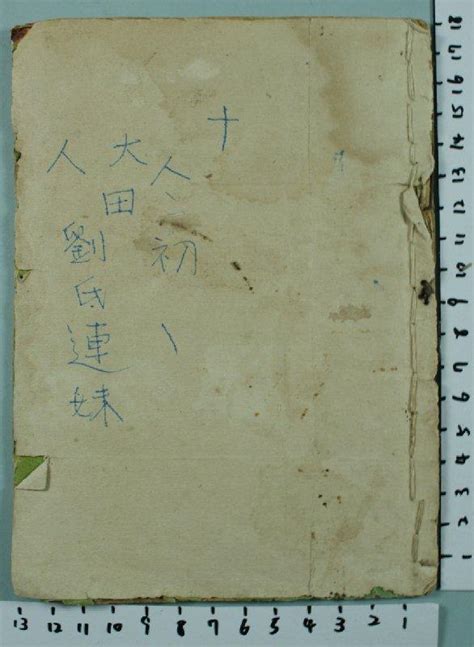 十
人二初
大田
人
劉氏連妹
18
17
16
15
14
13
12
11
10
9
8
7
6
5
4
3
2
1
13 12 11 10 9 8 7 6 5 4 3 2 1